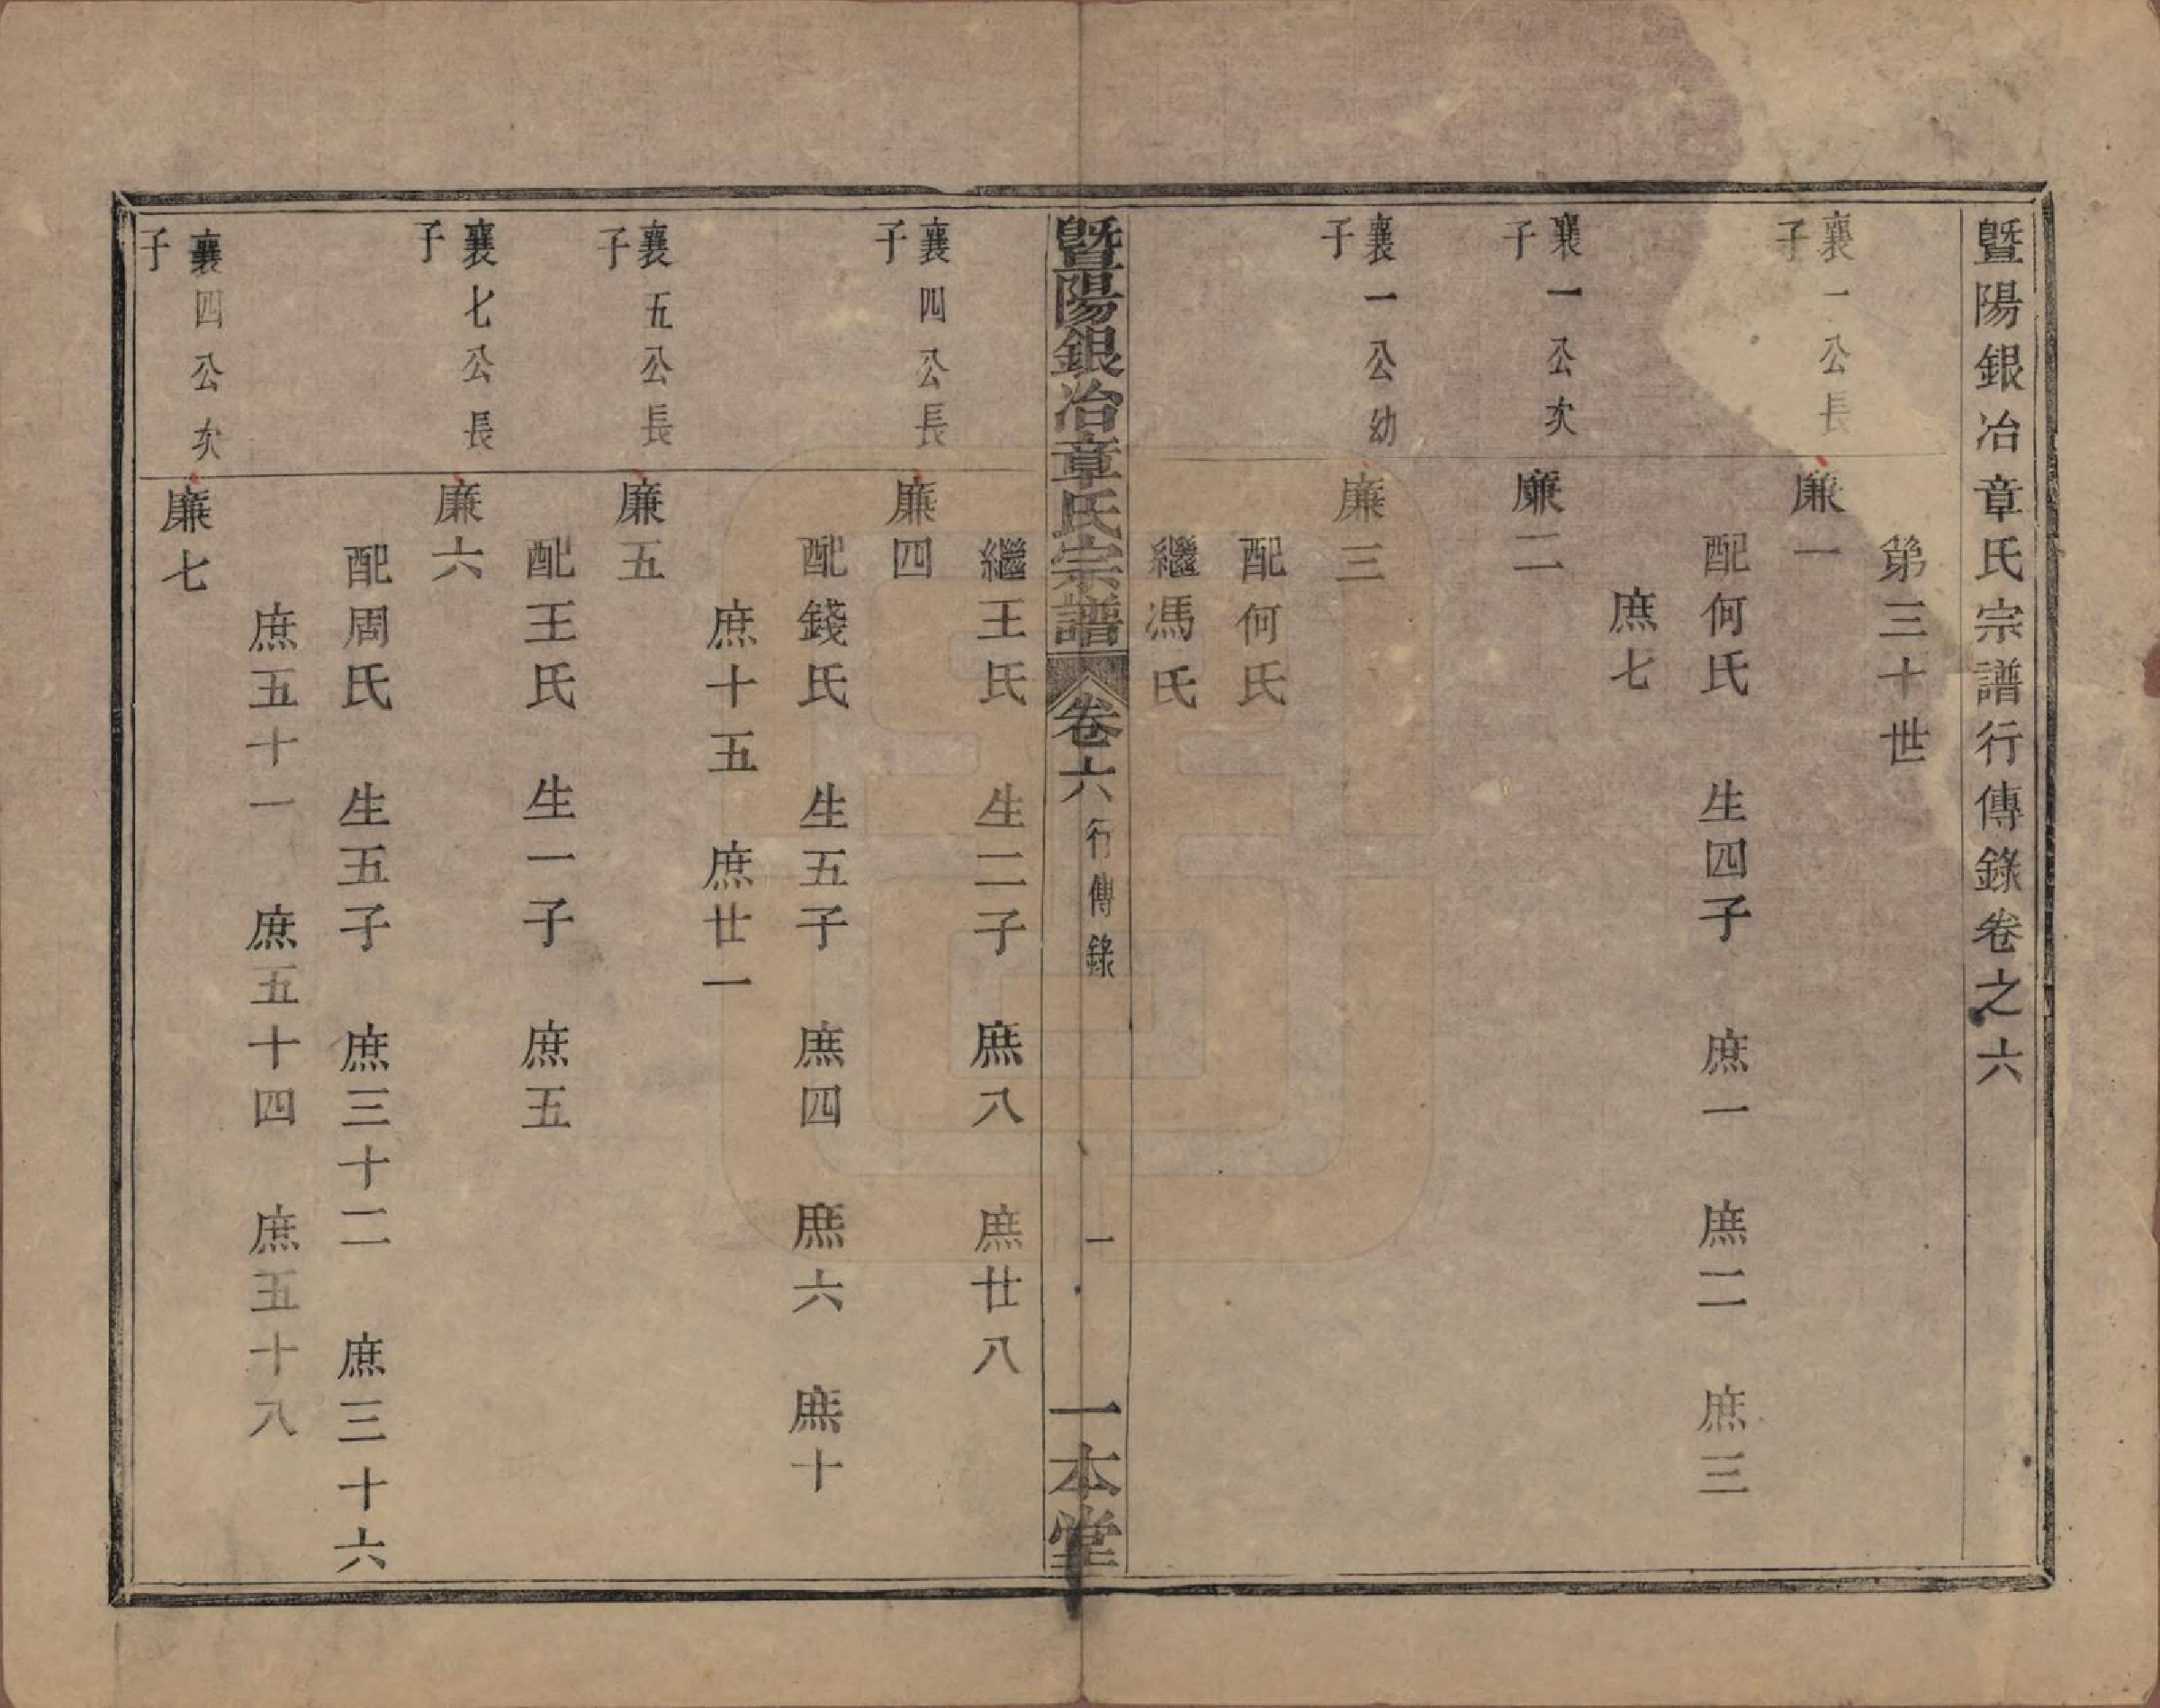 暨陽銀冶章氏宗譜行傳錄卷之六
第三十世
襄一公長子
廉一
配何氏 生四子 庶一 庶二 庶三
庶七
襄一公次子
廉二
襄一公幼子
廉三
配何氏
繼馮氏
暨陽銀冶章氏宗譜 卷六 行傳錄 一 一本堂
繼王氏 生二子 庶八 庶廿八
襄四公長子
廉四
配錢氏 生五子 庶四 庶六 庶十
庶十五 庶廿一
襄五公長子
廉五
配王氏 生一子 庶五
襄七公長子
廉六
配周氏 生五子 庶三十二 庶三十六
庶五十一 庶五十四 庶五十八
襄四公次子
廉七